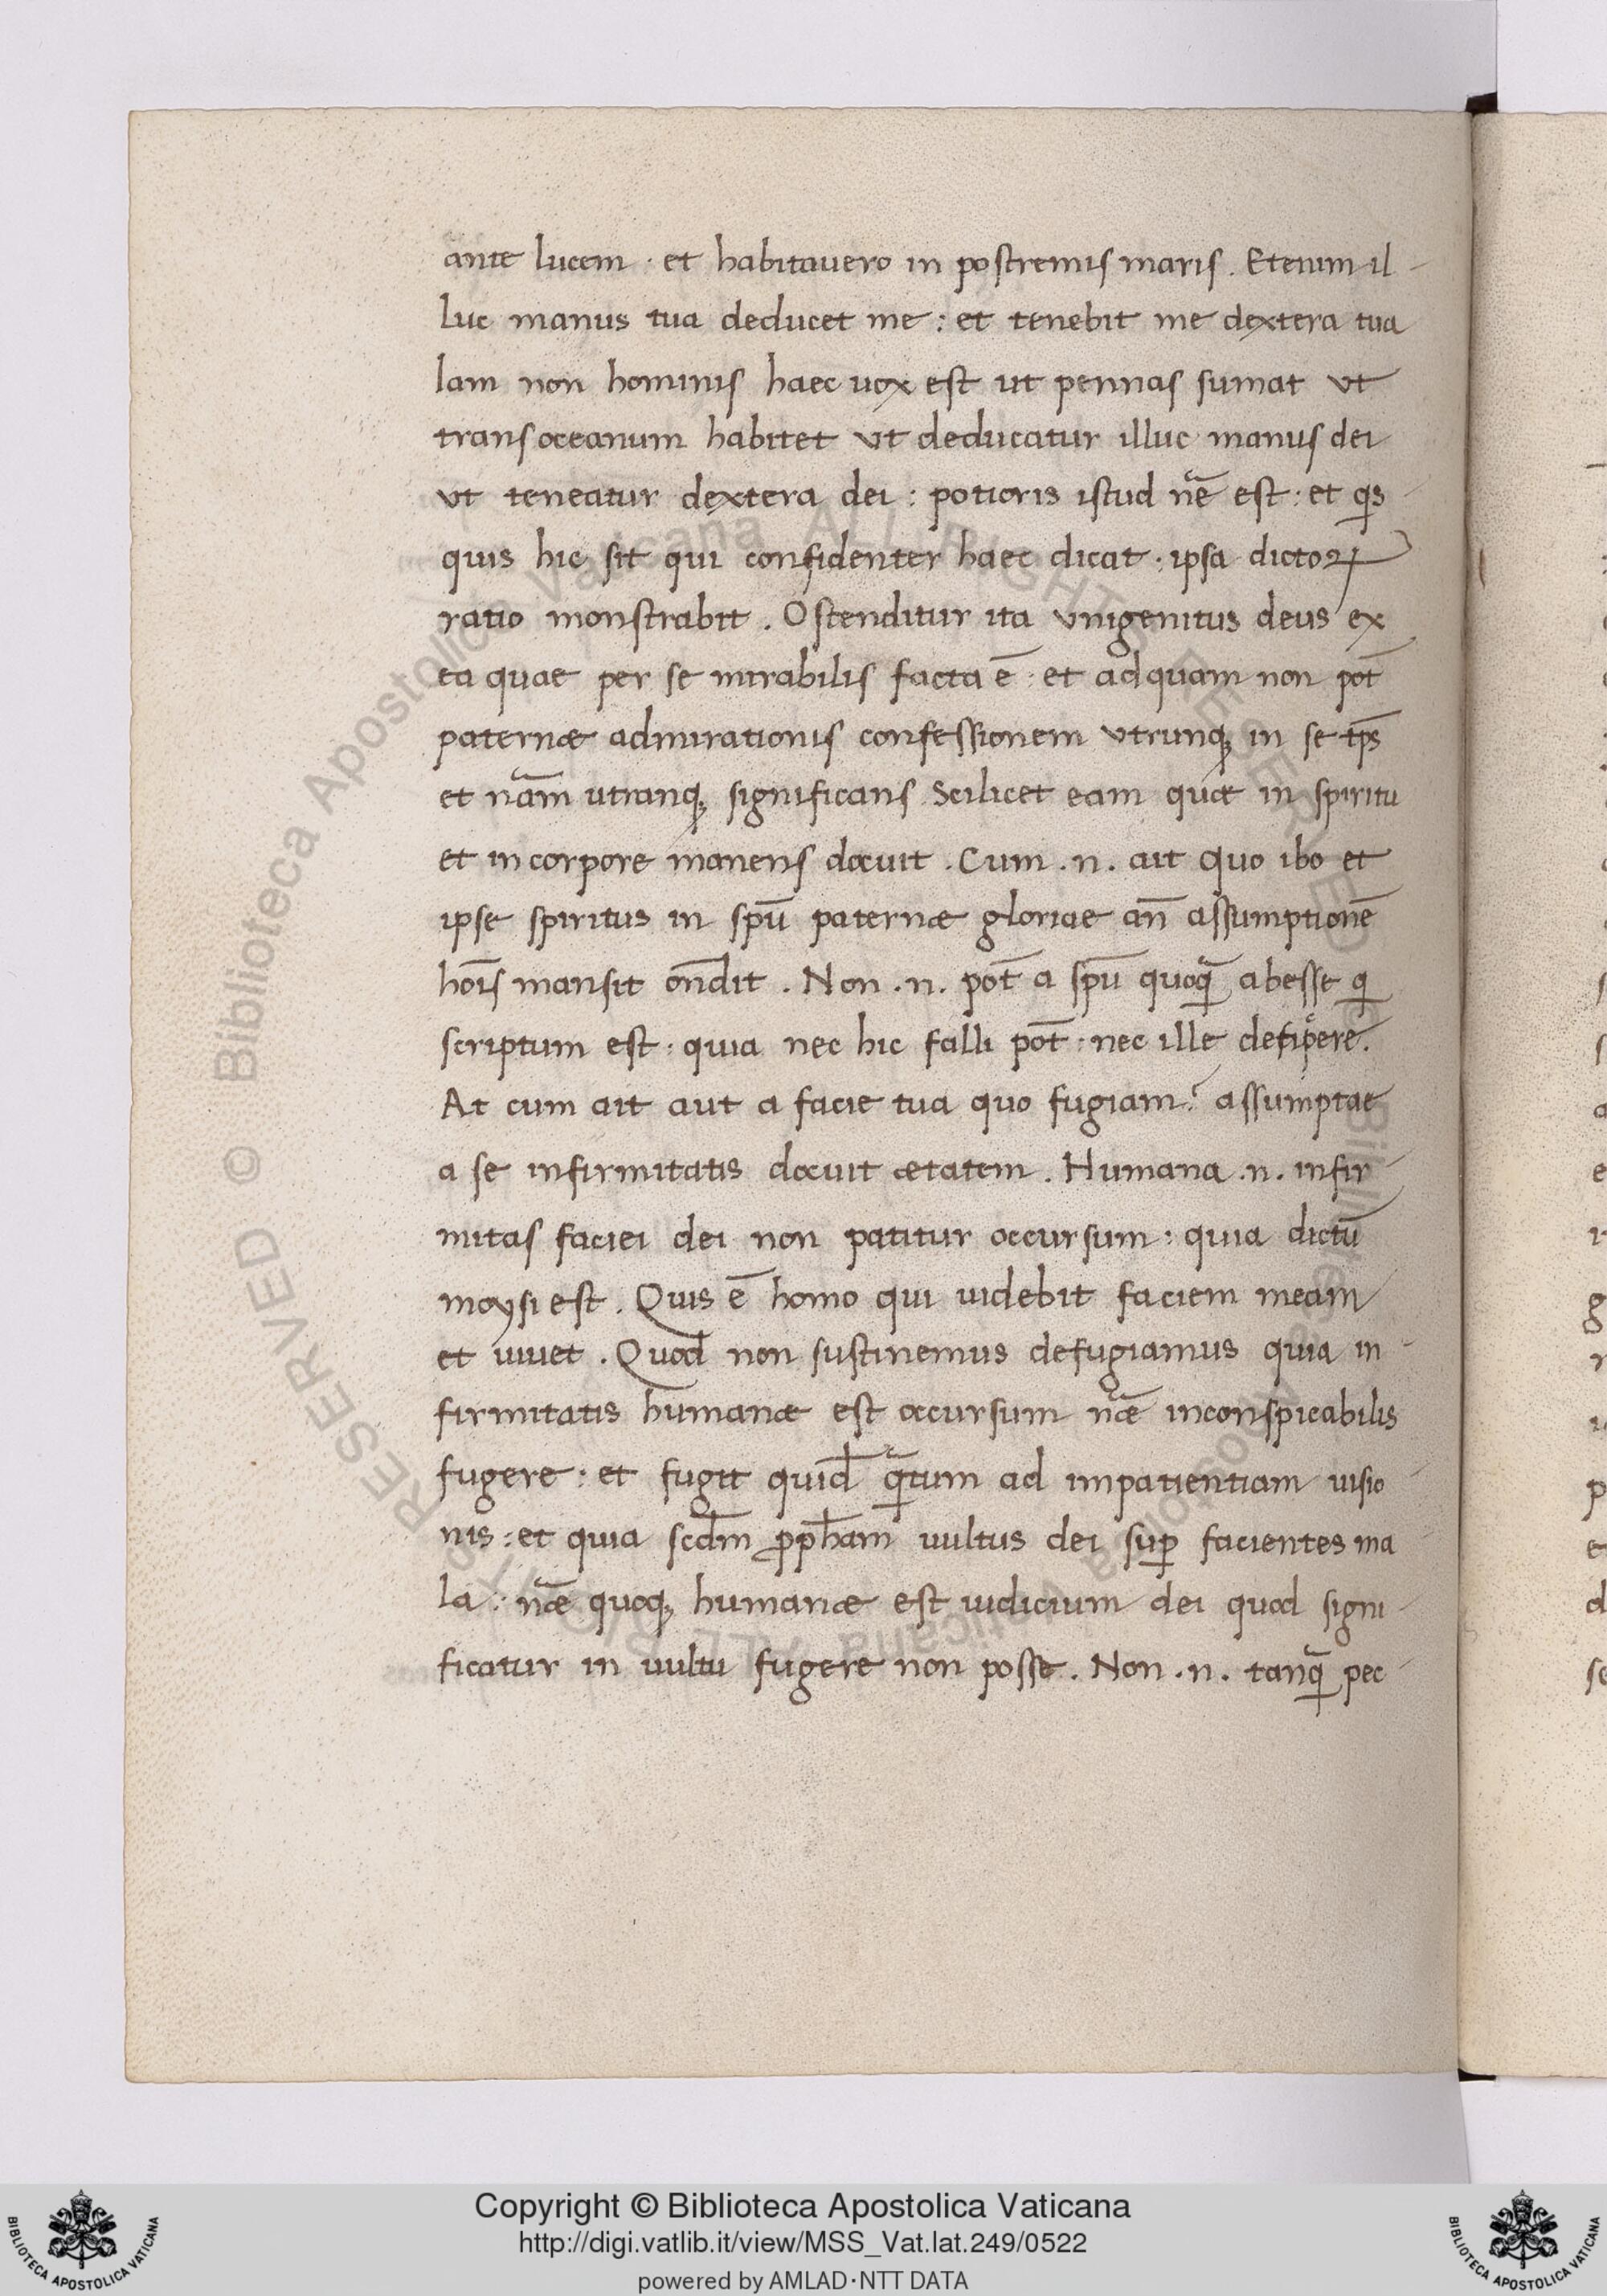 ante lucem · et habitauero in postremis maris . Etenim il-
luc manus tua deducet me : et tenebit me dextera tua
Iam non hominis haec uox est ut pennas sumat vt
trans oceanum habitet vt deducatur illuc manus dei
vt teneatur dextera dei : potioris istud nae̅ est : et qs
quis hic sit qui confidenter haec dicat · ipsa dictoꝝ
ratio monstrabit . Ostenditur ita vnigenitus deus ex
ea quae per se mirabilis facta e̅ : et ad quam non pot̅
paternæ admirationis confessionem vtrunq; in se tp̅s
et na̅m utranq; significans Scilicet eam quæ in spiritu
et in corpore manens docuit . Cum .n. ait quo ibo et
ipse spiritus in spu̅ paternæ gloriae an̅ assumptione̅
ho̅is mansit on̅dit . Non .n. pot̅ a spu̅ quoq̅ abesse q
scriptum est : quia nec hic falli pot̅ : nec ille
At cum ait aut a facie tua quo fugiam? assumptae
a se infirmitatis docuit ætatem . Humana .n. infir-
mitas faciei dei non patitur occursum : quia dictu̅
moysi est . Quis e̅ homo qui uidebit faciem meam
et uiuet . Quod non sustinemus defugiamus quia in-
firmitatis humanæ est occursum næ̅ inconspicabilis
fugere : et fugit quid̅ q̅tum ad impatientiam uisio-
nis : et quia scd̅m ꝓph̅am uultus dei suꝑ facientes ma-
la : næ̅ quoq; humanæ est iudicium dei quod signi-
ficatur in uultu fugere non posse . Non .n. tanq̅ pec-
© Biblioteca Apostolica Vaticana ALL RIGHTS RESERVED
Copyright © Biblioteca Apostolica Vaticana
http://digi.vatlib.it/view/MSS_Vat.lat.249/0522
powered by AMLAD·NTT DATA
BIBLIOTECA APOSTOLICA VATICANA
BIBLIOTECA APOSTOLICA VATICANA